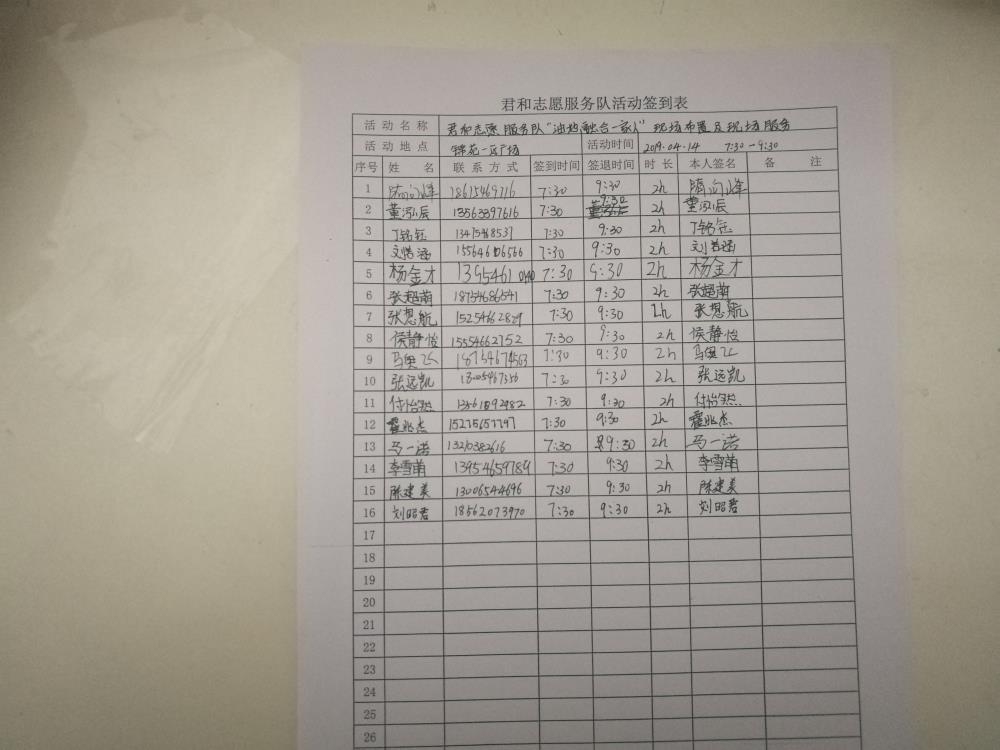 君和志愿服务队活动签到表
活动名称 君和志愿服务队"油地融合一家人"现场布置及现场服务
活动地点 锦苑一区广场 活动时间 2019.04.14 7:30-9:30
序号 姓名 联系方式 签到时间 签退时间 时长 本人签名 备注
1 18615469716 7:30 9:30 2h
2 董泓辰 13563397616 7:30 9:30 2h 董泓辰
3 丁铭钰 13475468537 7:30 9:30 2h 丁铭钰
4 刘皓涵 15564606566 7:30 9:30 2h 刘皓涵
5 杨金才 1395461 7:30 9:30 2h 杨金才
6 张超萌 18754686541 7:30 9:30 2h 张超萌
7 张恩航 15254662829 7:30 9:30 2h 张恩航
8 侯静怡 15554662752 7:30 9:30 2h 侯静怡
9 18754674563 7:30 9:30 2h
10 张远凯 7:30 9:30 2h 张远凯
11 付怡然 7:30 9:30 2h 付怡然
12 霍兆杰 15275657797 7:30 9:30 2h 霍兆杰
13 马一诺 13210382616 7:30 9:30 2h 马一诺
14 李雪萌 13954659789 7:30 9:30 2h 李雪萌
15 陈建美 13006544696 7:30 9:30 2h 陈建美
16 刘昭君 18562073970 7:30 9:30 2h 刘昭君
17
18
19
20
21
22
23
24
25
26